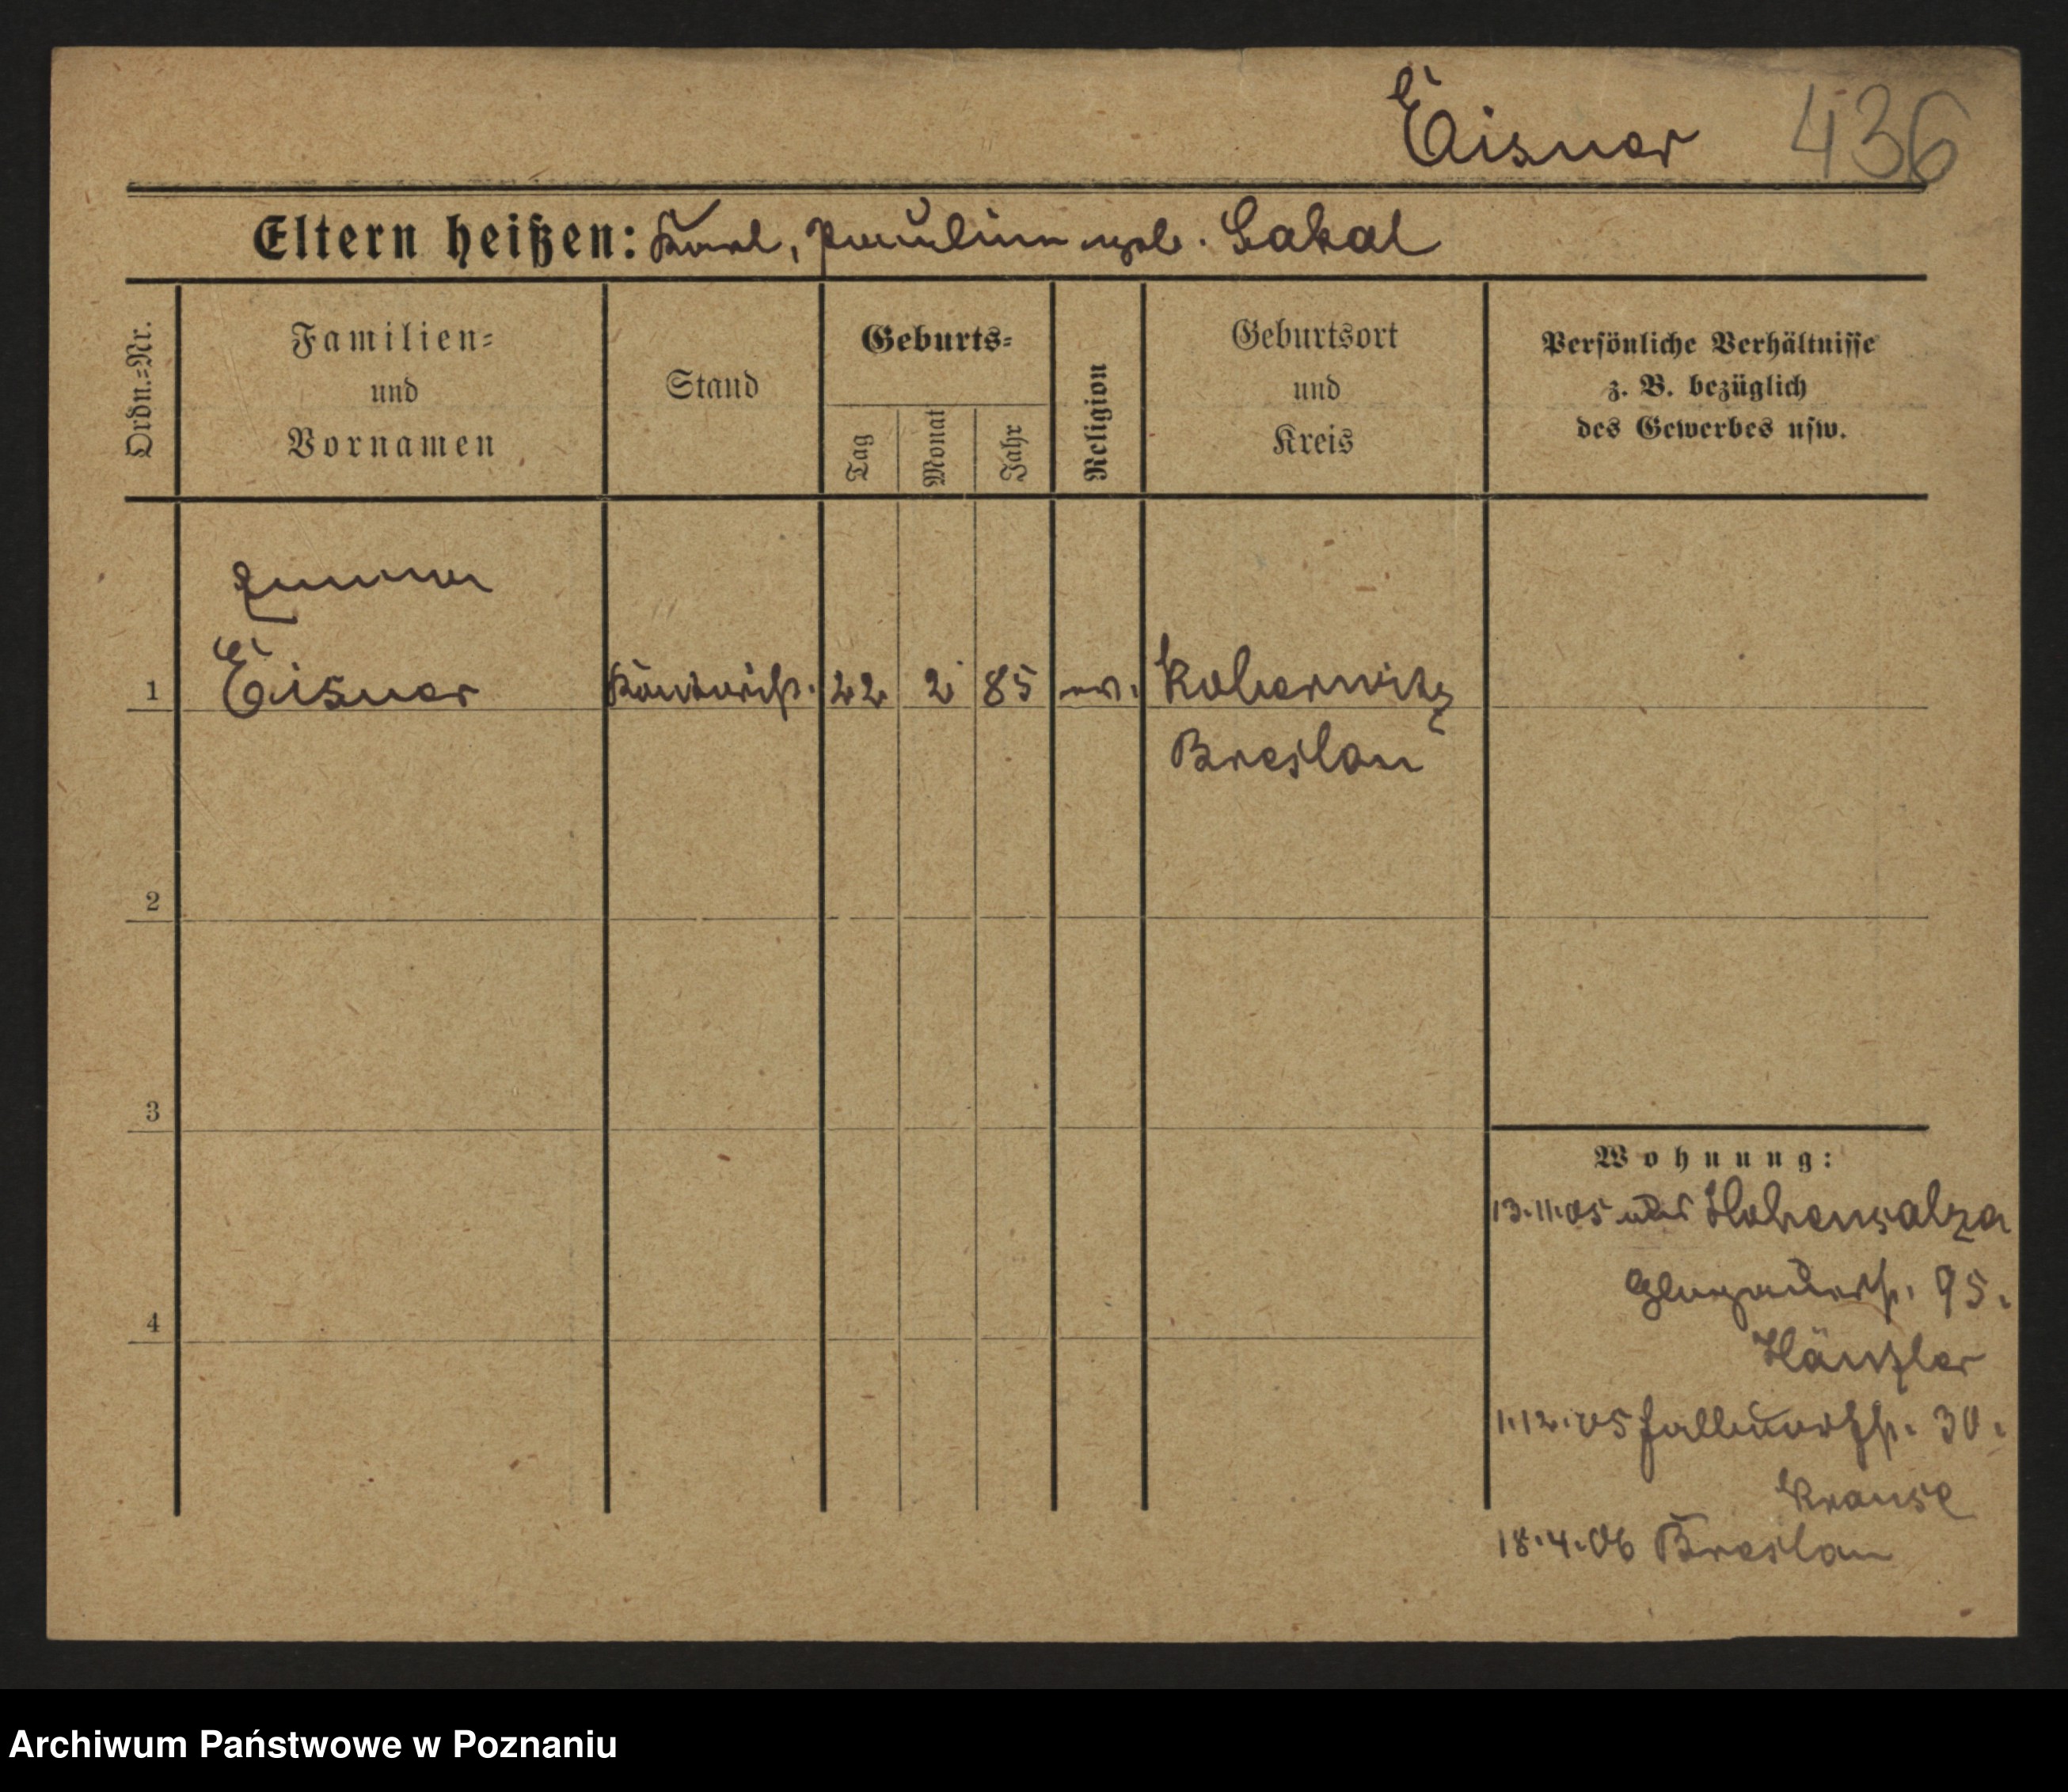 Eisner 436
Eltern heißen: Karl, Pauline geb. Lakal
Ordn.=Nr.
Familien=
und
Vornamen
Stand
Geburts=
Tag
Monat
Jahr
Religion
Geburtsort
und
Kreis
Persönliche Verhältnisse
z. B. bezüglich
des Gewerbes usw.
1 Eisner 22 2 85 ev. Koberwitz
Breslau
2
3
Wohnung:
13.11.05 aus Hohensalza
Glogauerstr. 95.
Hänzler
4
1.12.05 30.
Krause
18.4.06 Breslau
Archiwum Państwowe w Poznaniu